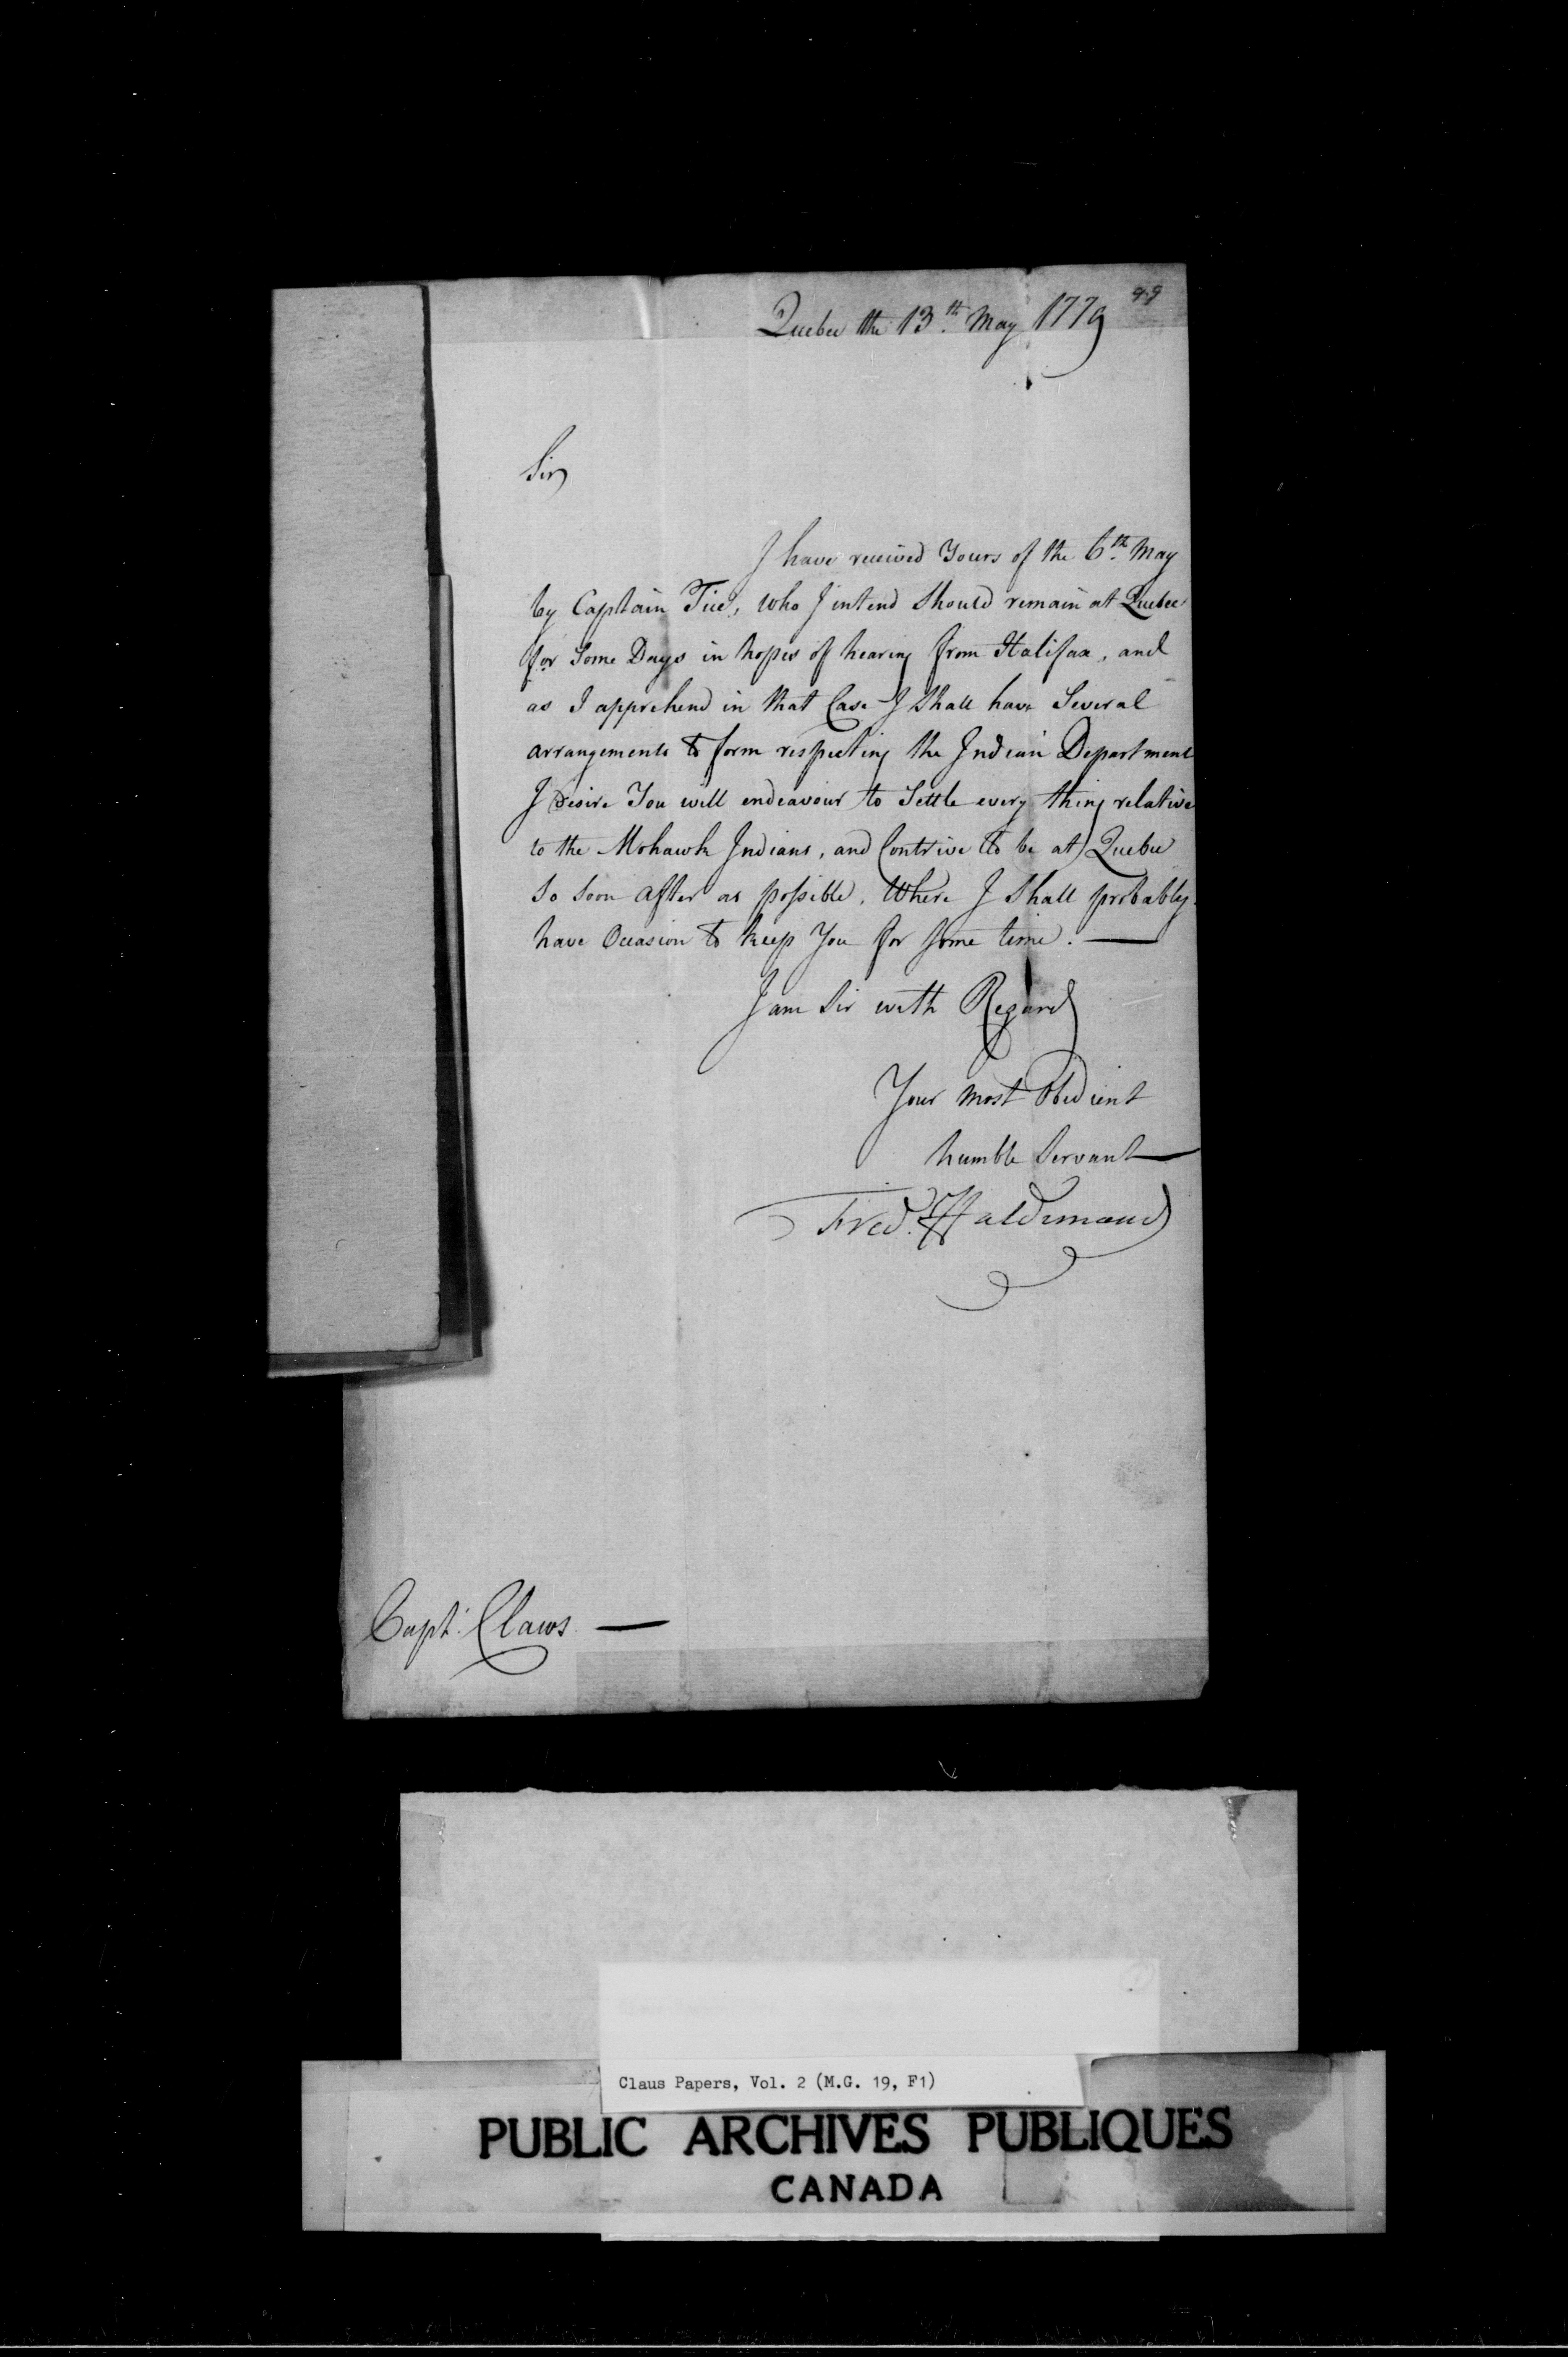 99
Quebec the 13th. May 1779
Sir
I have received Yours of the 6th. May
by Captain Tice, who I intend Should remain at Quebec
for Some Days in hopes of hearing from Halifax, and
as I apprehend in that Case I Shall have Several
arrangements to form respecting the Indian Department
I desire You will endeavour to Settle every thing relative
to the Mohawk Indians, and Contrive to be at Quebec
So Soon after as possible, Where I Shall probably
have Occasion to keep You for Some time. —
I am Sir with Regard
Your most Obedient
humble Servant
Fred: Haldimand
Capt: Claws. —
Claus Papers, Vol. 2 (M.G. 19, F1)
PUBLIC ARCHIVES PUBLIQUES
CANADA